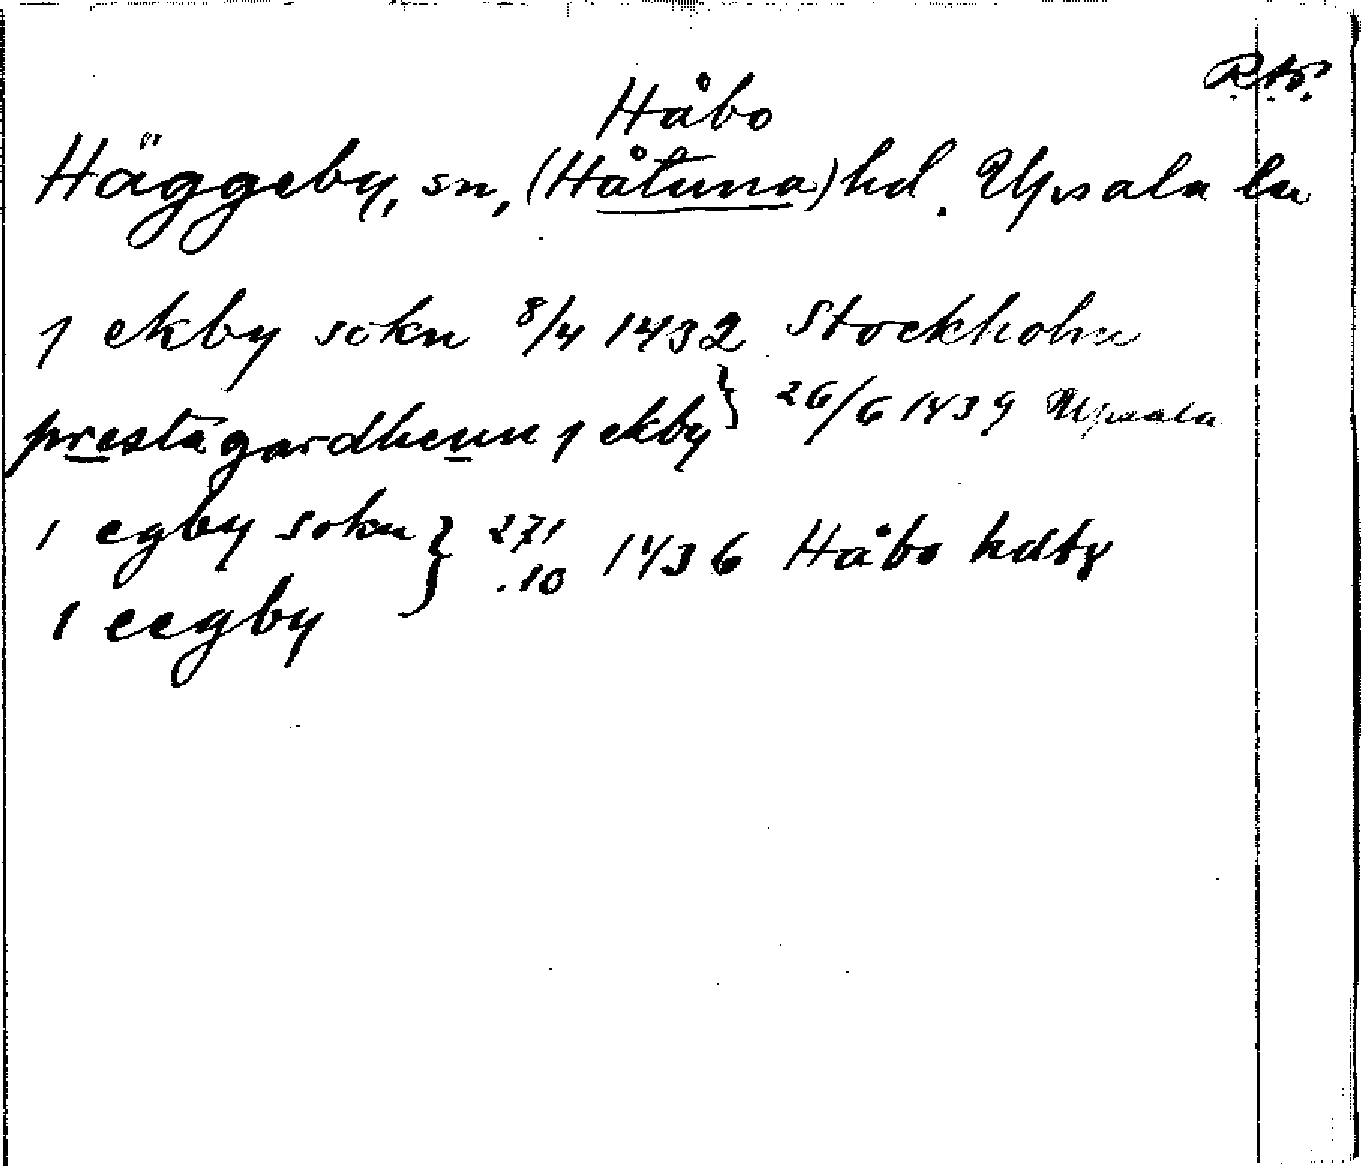 R.A.P.
Håbo
Häggeby, sn, (Håtuna) hd. Upsala län
j ekby sokn 8/4 1432 Stockholm
prestagardhenn j ekby } 26/6 1439 Upsala
i egby sokn } 27/10 1436 Håbo hdtg
i eegby